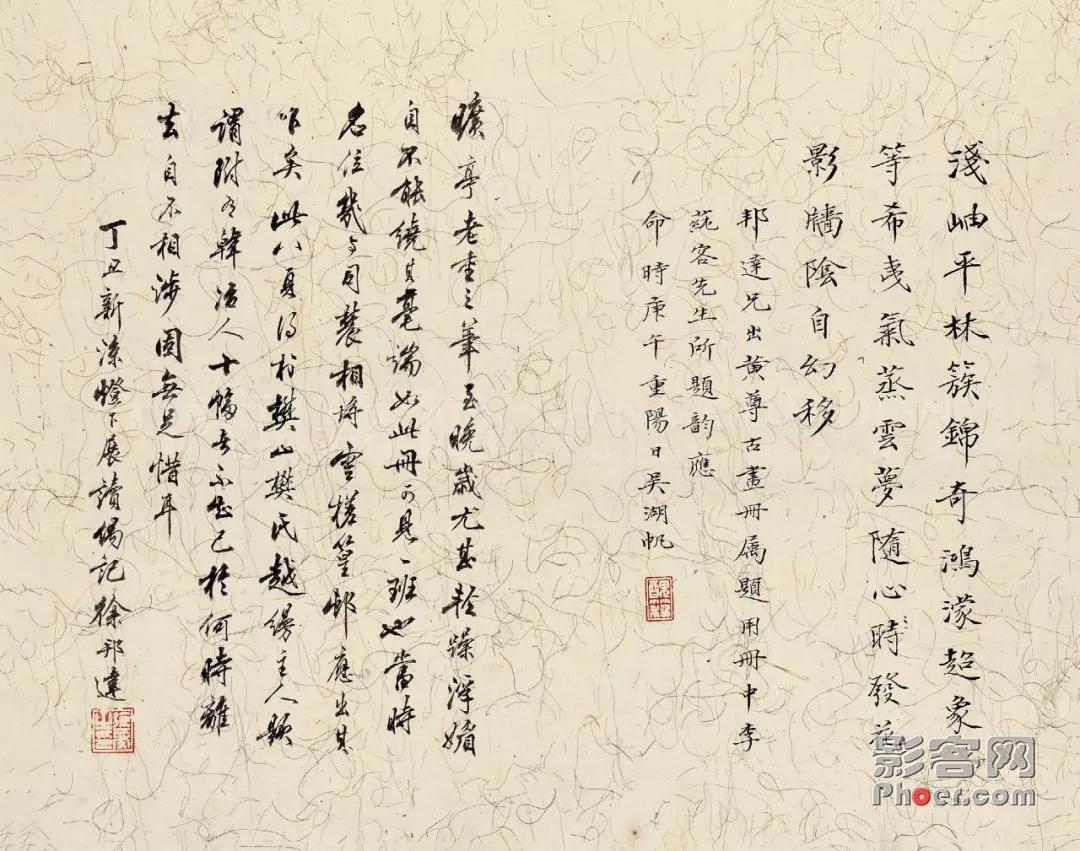 淺岫平林簇錦奇鴻濛超象
等希夷氣蒸雲夢隨心時發
影牆陰自幻移
邦達兄出黃尊古畫冊屬題用冊中李
蒓客先生所題韵應
命時庚午重陽日吳湖帆
曠亭老重之筆至晚歲尤甚輕躁浮媚
自不能繞其毫端如此冊可見一班也當時
名位幾与司農相埒雪槎篁邨應出其
下矣此八頁得於樊山樊氏越縵主人題
謂附有韓冶人十幅者不知已於何時離
去自不相涉固無足惜耳
丁丑新涼燈下展讀偶記徐邦達
影客网
Phoer.com